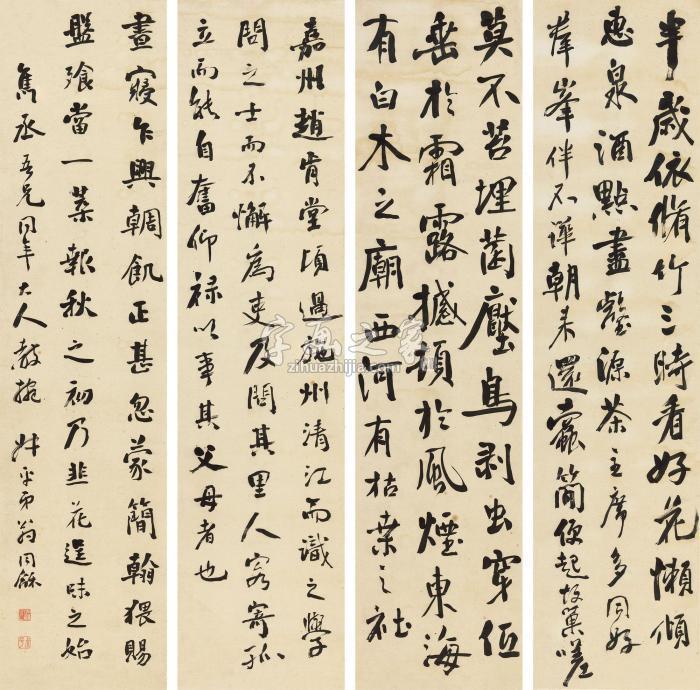 半歲依脩竹三時看好花懶傾
惠泉酒點盡壑源茶主席多同好
羣峯伴不譁朝来還蠹簡便起故巢嗟
莫不苔埋菌壓鳥剥虫穿低
垂於霜露撼頓於風煙東海
有白木之廟西河有枯桒之社
嘉州趙肯堂頃過施州清江而識之學
問之士而不懈為吏及問其里人客寄孤
立而能自奮仰祿以事其父母者也
晝寢乍興輖飢正甚忽蒙簡翰猥賜
盤飱當一葉報秋之初乃韭花逞味之始
雋丞吾兄同年大人教 叔平弟翁同龢
字画之家
www.zihuazhijia.com